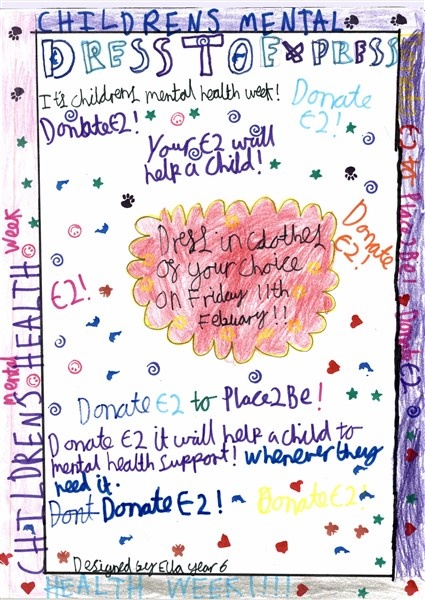 CHILDRENS MENTAL
DRESS TO EXPRESS
It's childrens mental health week!
Donate
£2!
Donbate£2!
Your £2 will
help a child!
Donate
£2!
Dress in clothes
of your choice
on Friday 11th
Febuary!!
£2!
Donate £2 to Place2Be!
Donate £2 it will help a child to
mental health support! whenever they
need it.
Dont Donate £2!
Donate£2!
Designed by Ella year 6
HEALTH WEEK!!!!
CHILDREN'S HEALTH
mental
week
£2 to Place2Be! Donate £2